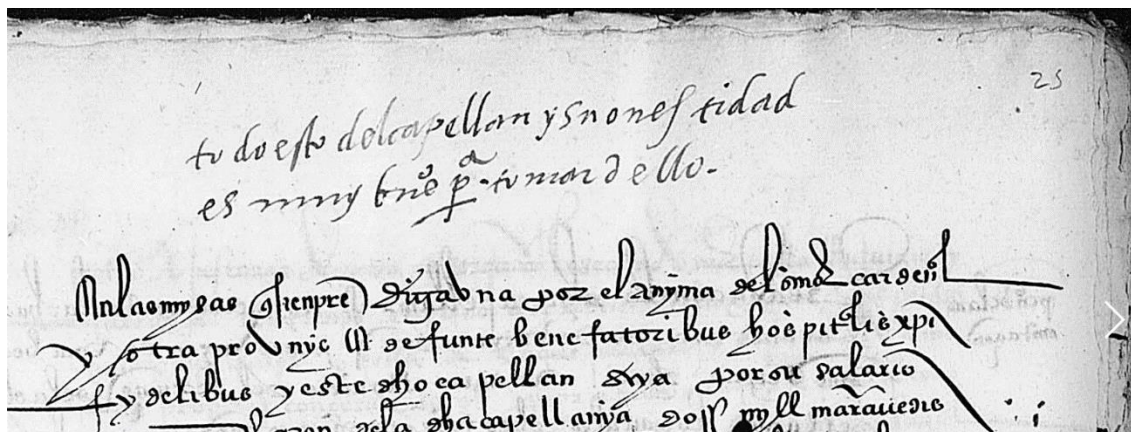 25
todo esto del capellan y su onestidad
es muy bue° pª tomar dello.
en las mysas sienpre diga vna por el anyma del cardenl
y otra pro de funtis bene fatoribus
fidelibus y este dho capellan aya por su salario
dela dha capellanya dos myll marauedis